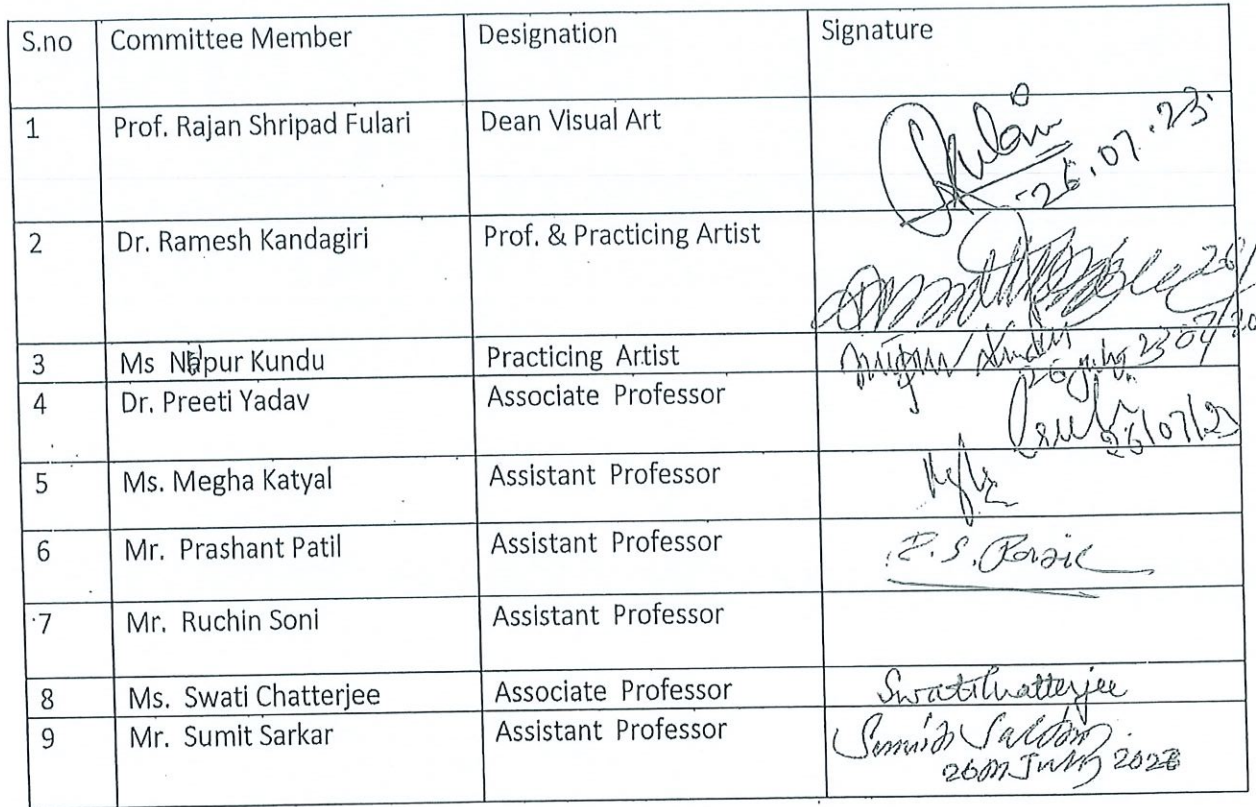 S.no Committee Member Designation Signature
1 Prof. Rajan Shripad Fulari Dean Visual Art
26.07.23
2 Dr. Ramesh Kandagiri Prof. & Practicing Artist
3 Ms Kundu Practicing Artist
4 Dr. Preeti Yadav Associate Professor
26/07/23
5 Ms. Megha Katyal Assistant Professor
6 Mr. Prashant Patil Assistant Professor P.S.
7 Mr. Ruchin Soni Assistant Professor
8 Ms. Swati Chatterjee Associate Professor Swati Chatterjee
9 Mr. Sumit Sarkar Assistant Professor Sumit Sarkar
July